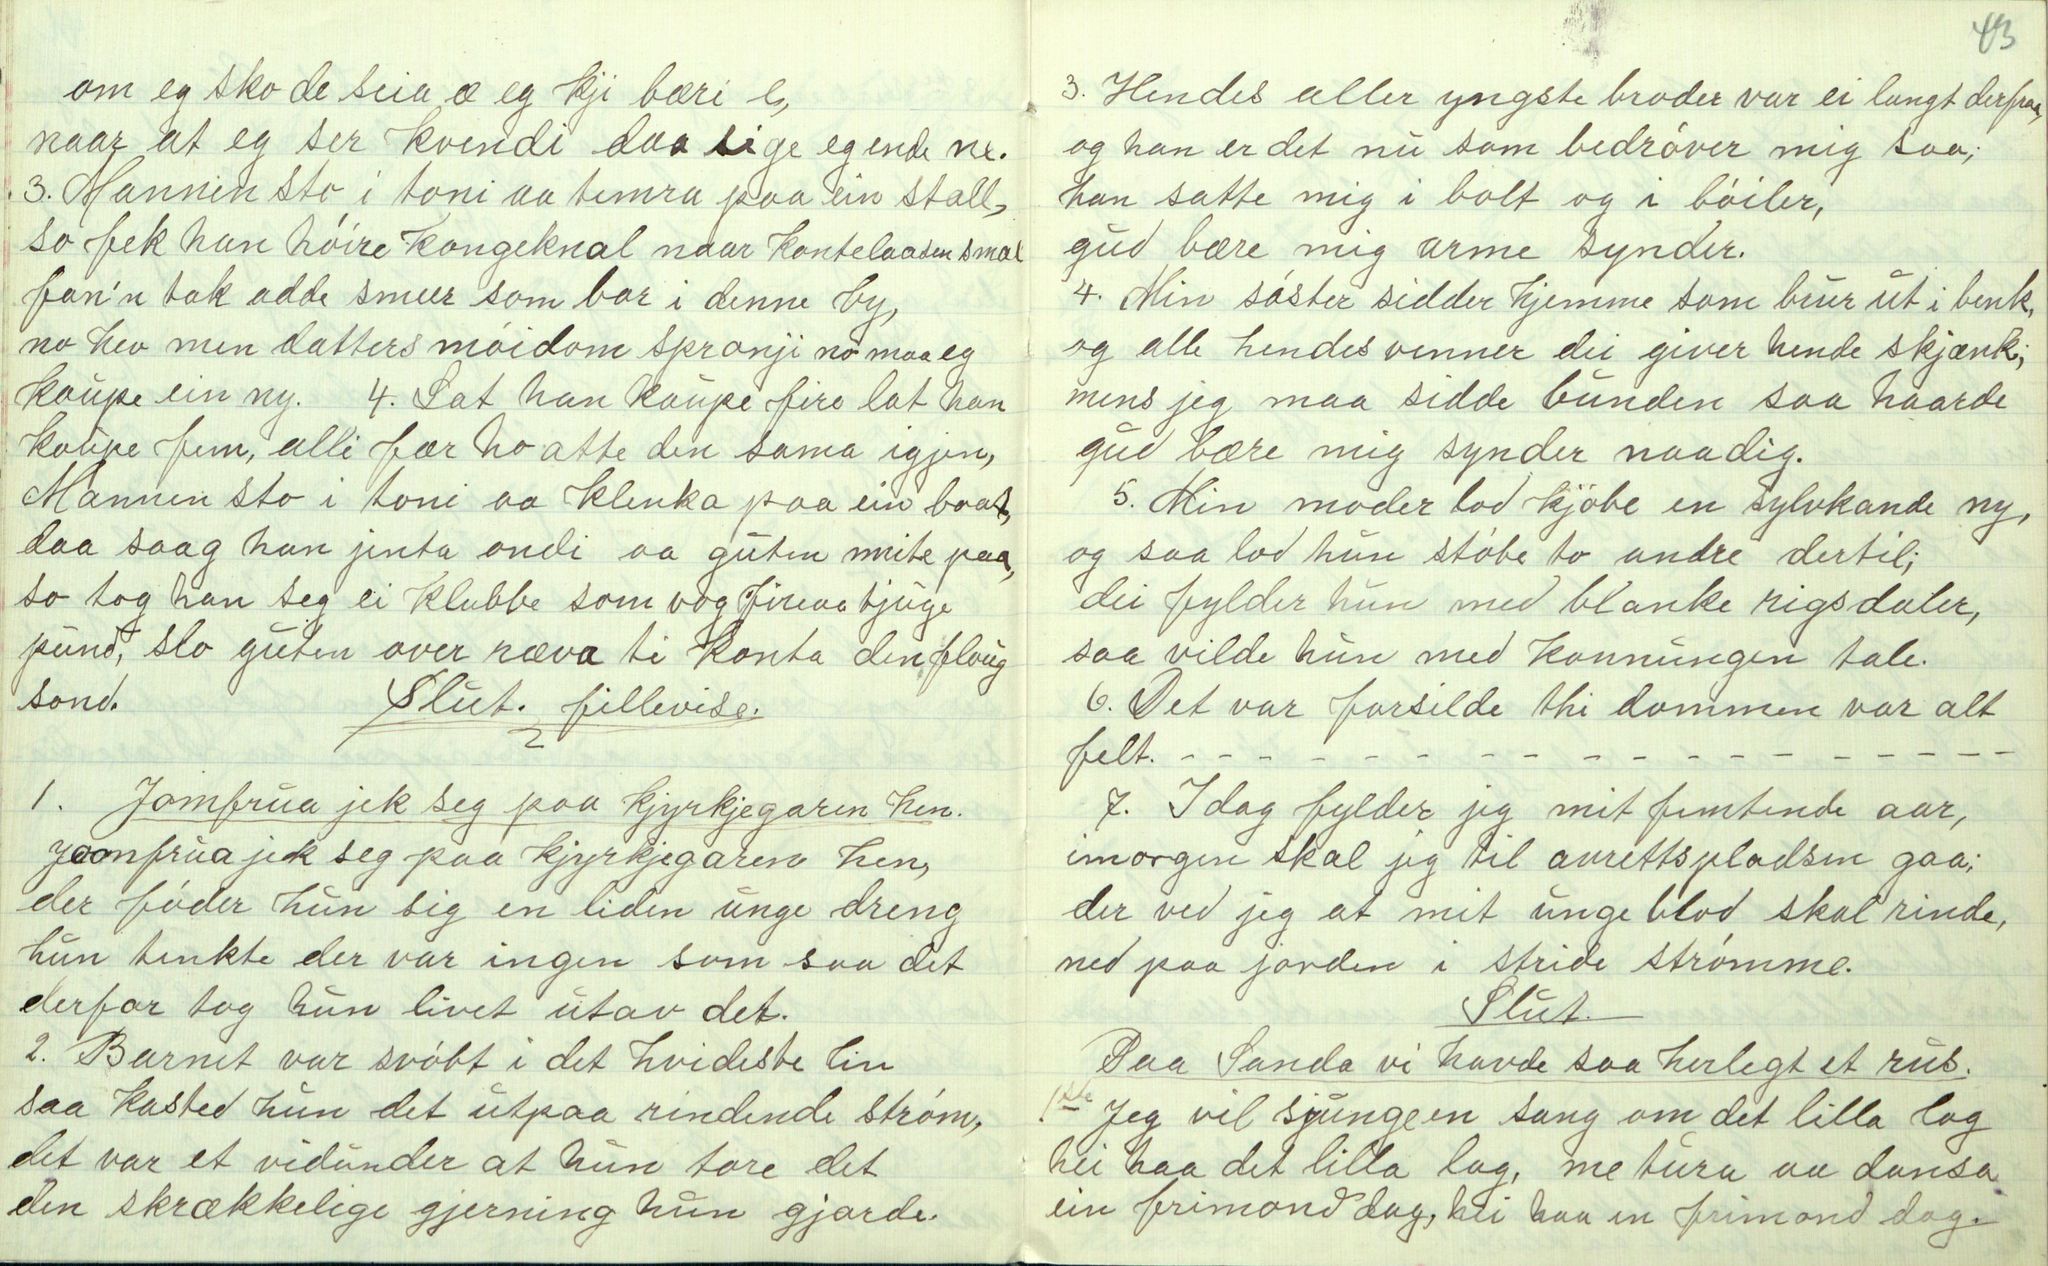 om eg sko de seia, æ eg kji bæri e,
naar at eg ser kvendi daa sige eg ende ne.
3. Mannen sto i toni aa temra paa ein stall,
so fek han höire kongeknal naar kontelaasen smal
fan'n tak adde smeer som bor i denne by,
no hev men datters möidom spronji no maa eg
koupe ein ny. 4. Lat han koupe fire lat han
koupe fem, alli fær ho atte den sama igjen,
Mannen sto i toni aa klenka paa ein baat,
daa saag han jenta ondi aa guten mite paa,
so tog han seg ei klubbe som vog fireaa tjuge
pund, slo guten over ræva ti konta den floug
sond. Slut. fillevise.
2
1. Jomfrua jek seg paa kjyrkjegaren hen.
Jomfrua jek seg paa kjyrkjegaren hen,
der föder hun sig en liden unge dreng
hun tenkte der var ingen som saa det
derfor tog hun livet utav det.
2. Barnet var svöbt i det hvideste lin
saa kasted hun det utpaa rindende ström,
det var et vidunder at hun tore det
den skrækkelige gjerning hun gjorde.
43
3. Hendes aller yngste broder var ei langt derfraa,
og han er det nu som bedröver mig saa;
han satte mig i bolt og i böiler,
gud bære mig arme synder.
4. Min söster sidder hjemme som bruur ut i benk,
og alle hendes venner dei giver hende skjænk;
mens jeg maa sidde bunden saa haarde
gud bære mig synder naadig.
5. Min moder lod kjöbe en sylvkande ny,
og saa lod hun stöbe to andre dertil;
dei fylder hun med blanke rigsdaler,
saa vilde hun med konnungen tale.
6. Det var forsilde thi dommen var alt
felt. - - - - - - - - - - - - - - - - -
7. Idag fylder jeg mit femtende aar,
imorgen skal jeg til avrettspladsen gaa;
der ved jeg at mit unge blod skal rinde,
ned paa jorden i stride strömme.
Slut.
Paa Sanda vi havde saa herlegt et rus.
1ste Jeg vil sjunge en sang om det lilla lag
hei haa det lilla lag, me tura aa dansa
ein frimond dag, hei haa en frimond dag.